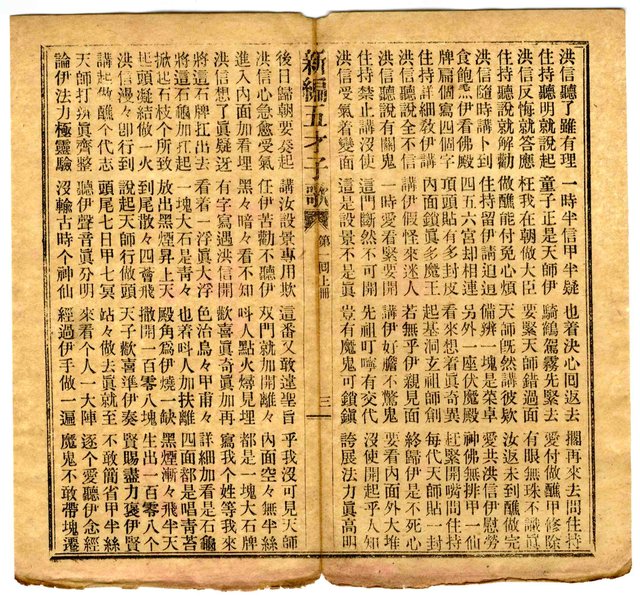 洪信聽了雖有理 一時半信甲半疑 也着決心囘返去 擱再來去問住持
住持聽明就說起 童子正是天師伊 騎鶴駕霧先緊去 愛付做醮甲修除
洪信反悔就答應 枉我在朝做大臣 要緊天師錯過面 有眼無珠不識眞
住持聽說就解勸 做醮能付免心煩 天師旣然講彼欵 汝返未到醮做完
洪信隨時講卜到 住持留伊請迫 備辨一塊是荣卓 愛共洪信伊慰勞
食飽伊看佛殿 四五六宮却相連 另外一座伏魔殿 神佛無排甲一仙
牌扁個寫四個字 頂頭貼有多封皮 看來想看眞奇異 赶緊開嘴問住持
住持詳細敎伊講 內面鎖眞多魔王 起基洞玄祖師創 每代天師貼一封
洪信聽說全不信 講伊假怪來迷人 若無乎伊親見面 終歸伊是不死心
洪信聽說有關鬼 一時愛看緊要開 講伊好膽不驚鬼 要看內面外大堆
住持禁止講沒使 這門斷然不可開 先祖叮嚀有交代 沒使開起乎人知
洪信受氣着變面 這是設景不是眞 豈有魔鬼可鎖鎭 誇展法力眞高明
新編五才子歌 第一回上冊 三
後日歸朝要癸起 講汝設景專用欺 這番又敢違聖旨 乎我沒可見天師
洪信心急愈受氣 任伊苦勸不聽伊 双門就加開離々 內面空々無半絲
進入內面加看埋 黑々暗々看不知 呌人點火燐見埋 都是一塊大石牌
洪信想是眞疑迓 有字寫遇洪信開 歡喜眞奇眞加再 寫我个姓等我來
將這石牌扛出去 看着一浮眞大浮 色治鳥々甲甫々 詳細加看是石龜
將這石龜加扛起 一塊大石是青々 也着呌人加扶離 四面都是唱青苔
掀起石枝个所致 放出黑煙昇上天 殿角爲伊燒一缺 黑煙漸々飛半天
起頭凝結做一火 到尾散々四飛 撒開一百零八塊 生出一百零八个
洪信漫々卽行到 說起天師行做頭 天子歡喜準伊奏 賢賜盡力褒伊賢
講起做醮个代志 頭尾七日甲七冥 站々做去眞就至 不敢簡省甲半絲
天師打扮眞齊整 聽伊聲音眞分明 來看个人一大陣 逐个愛聽伊念經
論伊法力極靈驗 沒輸古時个神仙 經過伊手做一遍 魔鬼不敢帶塊遷